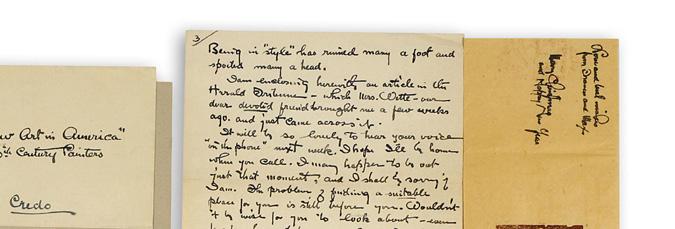 w Art in America"
th Century Painters
Credo
3
Being in "style" has ruined many a foot and
spoiled many a head.
I am enclosing herewith an article in the
Herald Tribune – which Mrs. Witte – our
dear devoted friend brought me a few weeks
ago. and just came across it.
It will be so lovely to hear your voice
"on the phone" next week. I hope I'll be home
when you call. I may happen to be out
just that moment, and I shall be sorry if
I am. The problem of finding a suitable
place for you is still before you. Wouldn't
it be wise for you to look about – even
Love and best wishes
from
Merry Christmas
and Happy New Year